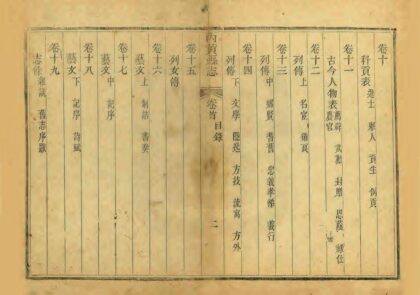 卷十
科貢表 進士 舉人 貢生 例貢
卷十一
古今人物表 薦辟 武勳 封贈 恩蔭 雜仕
農官
卷十二
列傳上 名宦 循良
卷十三
列傳中 鄉賢 耆舊 忠義 孝悌 義行
卷十四
列傳下 文學 隱逸 方技 流寓 方外
內黃縣志
卷首 目錄
二
卷十五
列女傳
卷十六
藝文上 制誥 書奏
卷十七
藝文中 記序
卷十八
藝文下 記序 詩賦
卷十九
志餘 雜識 舊志序跋